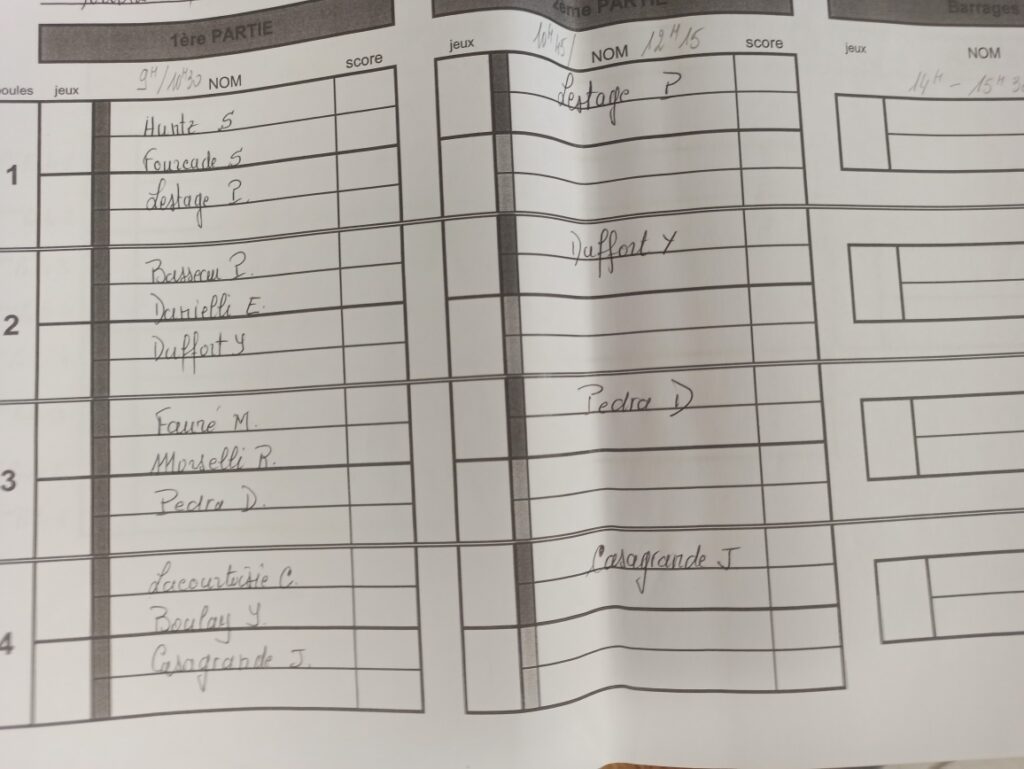 1ère PARTIE
poules jeux 9H/10H30 NOM score
1
Huntz S
Fourcade S
Lestage P.
2
Basseau P.
Danielli E.
Duffort Y
3
Fauré M.
Morselli R.
Pedra D.
4
Lacourtoisie C.
Boulay Y.
Casagrande J.
2ème PARTIE
jeux 10H45/ NOM 12H15 score
Lestage P
Duffort Y
Pedra D
Casagrande J
Barrages
jeux NOM
14H - 15H30